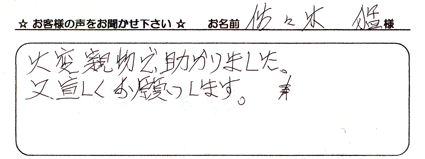 ☆ お客様の声をお聞かせ下さい ☆ お名前 佐々木 猛様
大変親切で助かりました。
又宜しくお願いします。